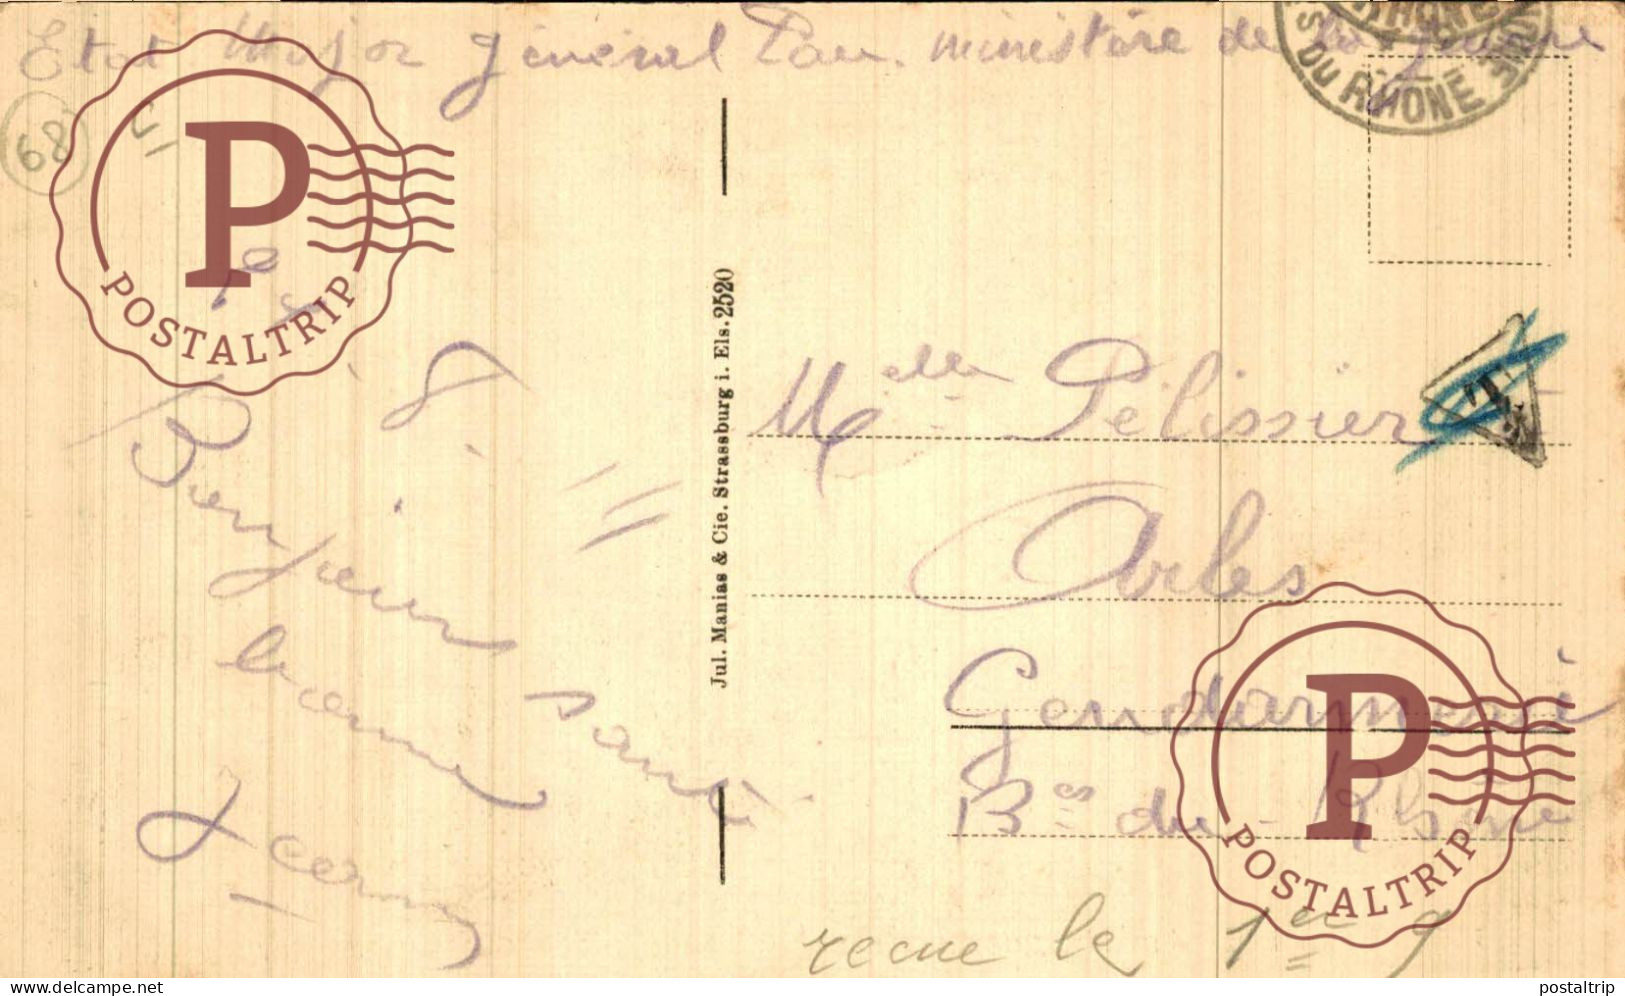 Etat Major général Pau. ministère de la guerre
RHONE
S DU RHONE
68
P
POSTALTRIP
8
Bonjour
bonne santé
Jul. Manias & Cie. Strassburg i. Els. 2520
Melle Pélissier
T
Arles
Gendarmerie
Bes du Rhône
P
POSTALTRIP
recue le 1er 9
Delcampe.net
postaltrip